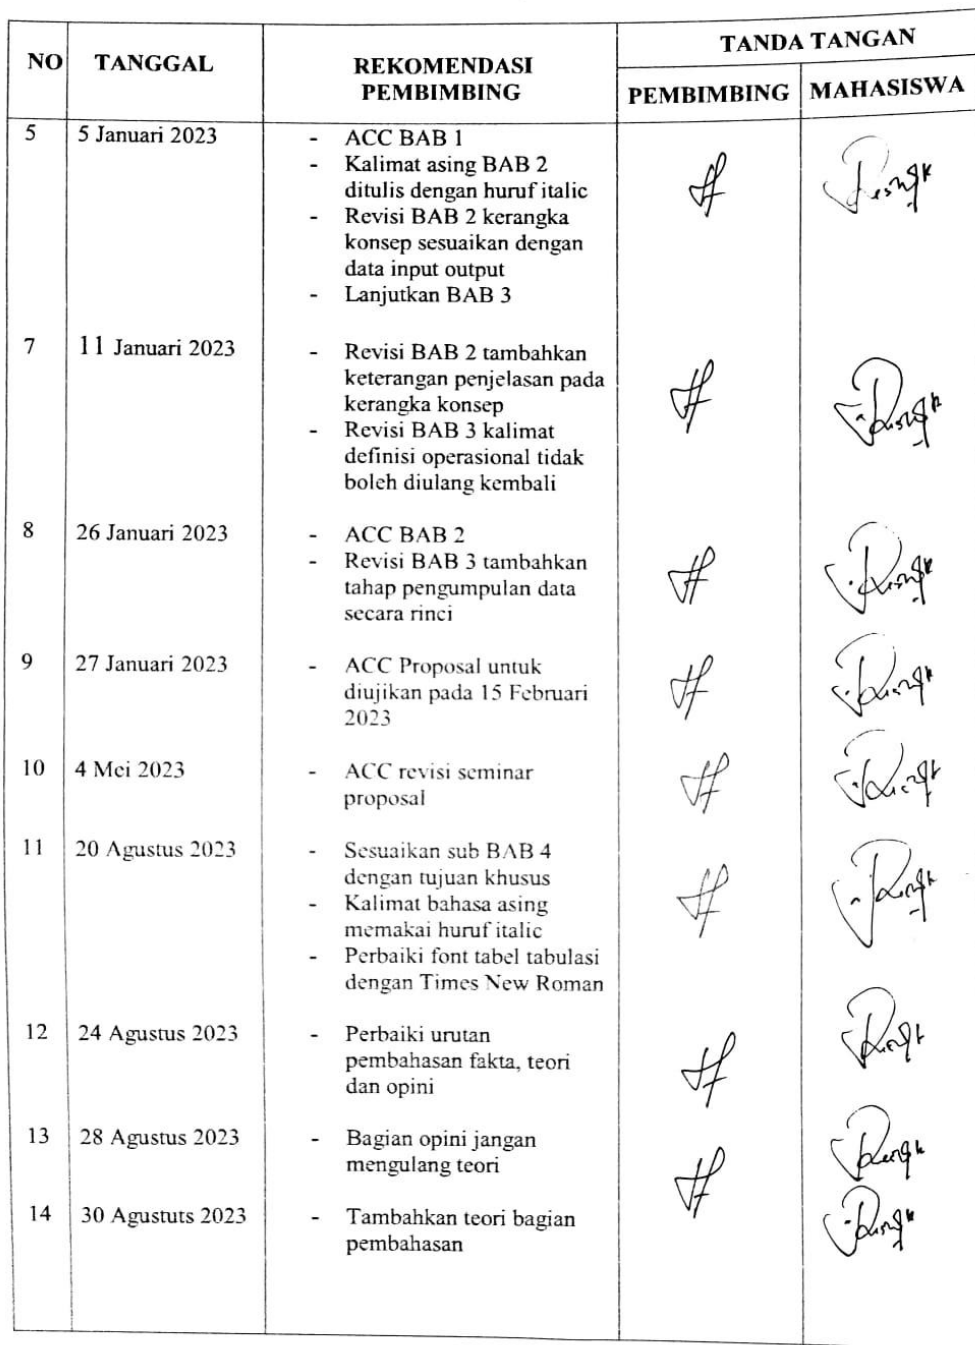 NO TANGGAL REKOMENDASI PEMBIMBING TANDA TANGAN
PEMBIMBING MAHASISWA
5 5 Januari 2023 - ACC BAB 1
- Kalimat asing BAB 2
ditulis dengan huruf italic
- Revisi BAB 2 kerangka
konsep sesuaikan dengan
data input output
- Lanjutkan BAB 3
7 11 Januari 2023 - Revisi BAB 2 tambahkan
keterangan penjelasan pada
kerangka konsep
- Revisi BAB 3 kalimat
definisi operasional tidak
boleh diulang kembali
8 26 Januari 2023 - ACC BAB 2
- Revisi BAB 3 tambahkan
tahap pengumpulan data
secara rinci
9 27 Januari 2023 - ACC Proposal untuk
diujikan pada 15 Februari
2023
10 4 Mei 2023 - ACC revisi seminar
proposal
11 20 Agustus 2023 - Sesuaikan sub BAB 4
dengan tujuan khusus
- Kalimat bahasa asing
memakai huruf italic
- Perbaiki font tabel tabulasi
dengan Times New Roman
12 24 Agustus 2023 - Perbaiki urutan
pembahasan fakta, teori
dan opini
13 28 Agustus 2023 - Bagian opini jangan
mengulang teori
14 30 Agustuts 2023 - Tambahkan teori bagian
pembahasan